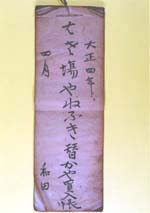 大正四年
場やねぶき替かや買入帳
四月
和田